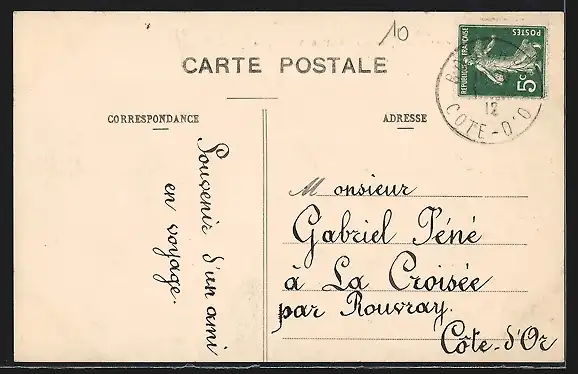 10
CARTE POSTALE
REPUBLIQUE FRANÇAISE
POSTES
5c
12
COTE-D'O
CORRESPONDANCE
ADRESSE
Souvenir d'un ami
en voyage.
Monsieur
Gabriel Péné
à La Croisée
par Rouvray.
Côte-d'Or